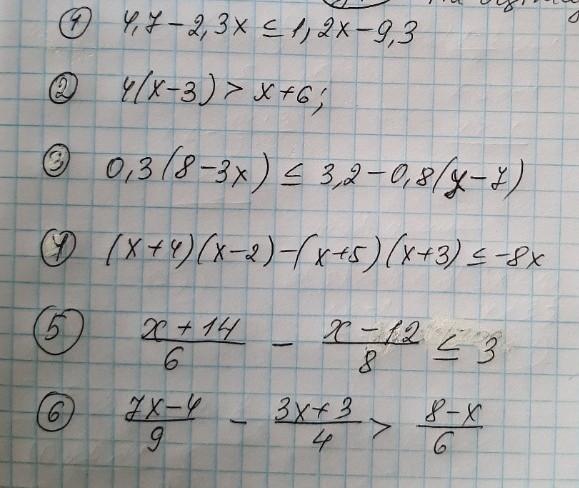 ① 4,7 - 2,3x ≤ 1,2x - 9,3
② 4(x-3) > x+6;
③ 0,3(8-3x) ≤ 3,2 - 0,8(y-7)
④ (x+4)(x-2) - (x+5)(x+3) ≤ -8x
⑤ (x+14)/6 - (x-12)/8 ≤ 3
⑥ (7x-4)/9 - (3x+3)/4 > (8-x)/6